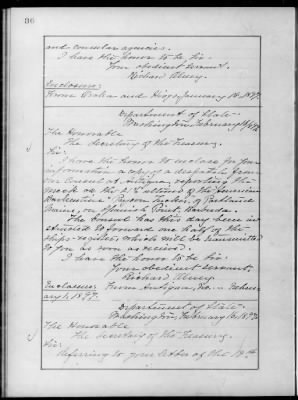 86
and consular agencies.
I have the honor to be, Sir,
Your obedient servant,
Richard Olney.
Enclosure:
From and January 16, 1897.
Department of State
Washington, February 16, 1897.
The Honorable
The Secretary of the Treasury.
Sir:
I have the honor to enclose for your
information a copy of a despatch from
our Consul at Antigua, reporting the
wreck on the of the American
Barkentine of Portland
Maine, on Spanish Point, Barbuda.
The Consul has this day been in-
structed to forward one half of the
ship's register, which will be transmitted
to you as soon as received.
I have the honor to be, Sir,
Your obedient servant,
Richard Olney
Enclosure: From Antigua, No. Febru-
ary 1, 1897.
Department of State
Washington, February 16, 1897
The Honorable
The Secretary of the Treasury.
Sir:
Referring to your letter of the 13th